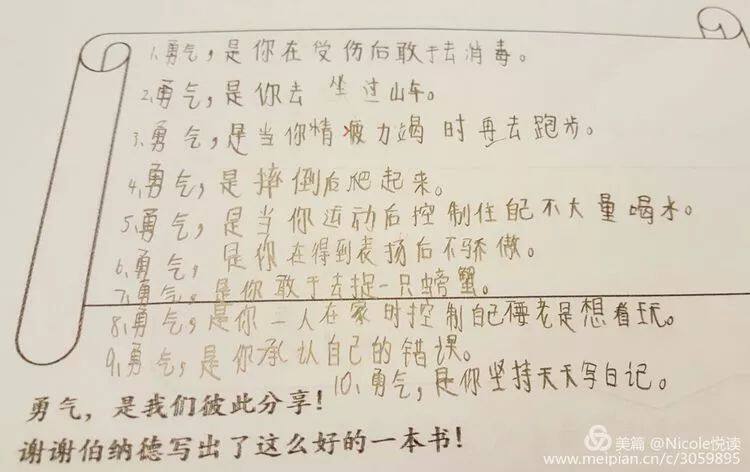 1.勇气，是你在受伤后敢于去消毒。
2.勇气，是你去坐过山车。
3.勇气，是当你精疲力竭时再去跑步。
4.勇气，是摔倒后爬起来。
5.勇气，是当你运动后控制住自己不大量喝水。
6.勇气，是你在得到表扬后不骄傲。
7.勇气。是你敢于去捉一只螃蟹。
8.勇气，是你一人在家时控制自己老是想着玩。
9.勇气，是你承认自己的错误。
10.勇气，是你坚持天天写日记。
勇气，是我们彼此分享！
谢谢伯纳德写出了这么好的一本书！
美篇 @Nicole悦读
www.meipian.cn/c/3059895